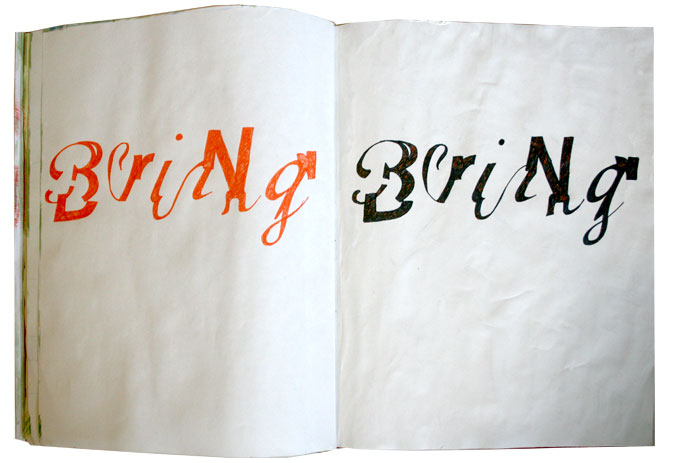 BoriNg
BoriNg